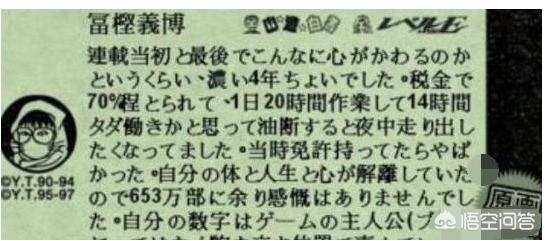 冨樫義博
レベルE
連載当初と最後でこんなに心がかわるのか
というくらい、濃い4年ちょいでした。税金で
70%程とられて、1日20時間作業して14時間
タダ働きかと思って油断すると夜中走り出し
たくなってました。当時免許持ってたらやば
かった。自分の体と人生と心が解離していた
ので653万部に余り感慨はありませんでし
た。自分の数字はゲームの主人公(ブ
©Y.T.90-94
©Y.T.95-97
原画
悟空问答